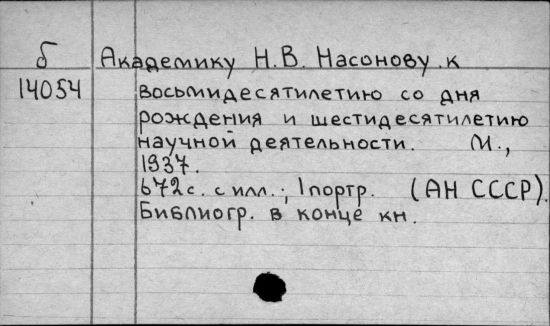 б Академику Н.В. Насонову к
14054 восьмидесятилетию со дня
рождения и шестидесятилетию
научной деятельности. М.,
1937.
672 с. с илл.; 1 портр. (АН СССР).
Библиогр. в конце кн.